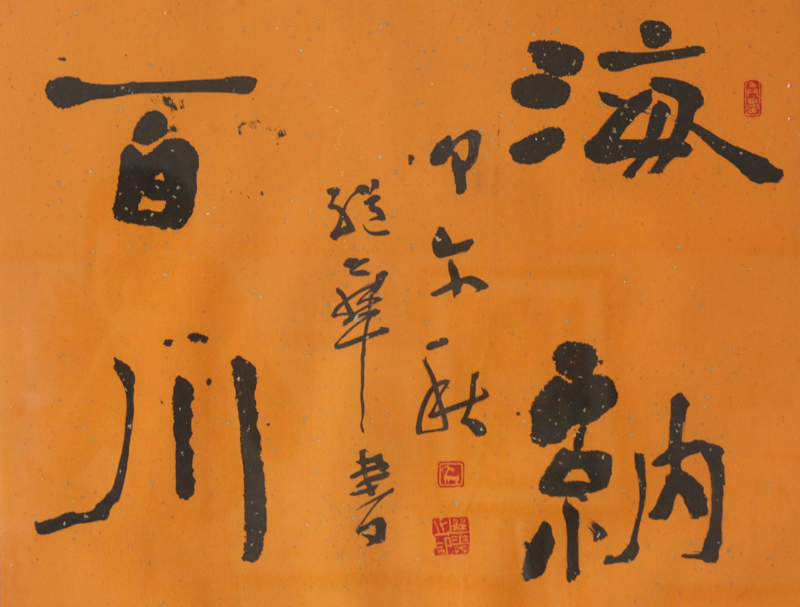 海納
百川
甲午秋
繼華書